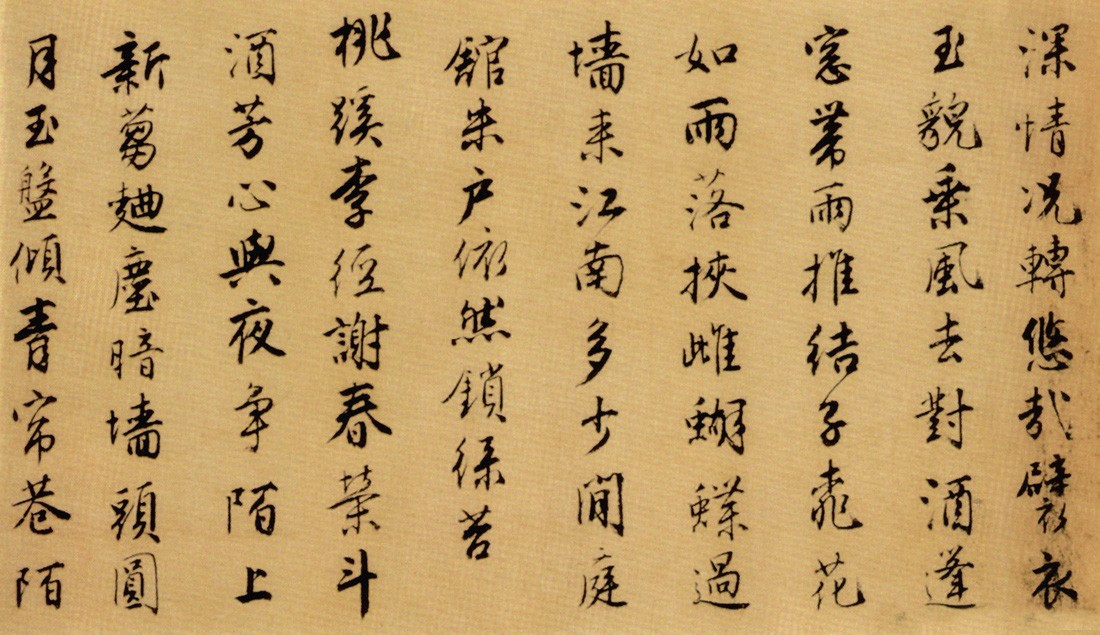 深情况轉悠哉襞衣
玉貌乘風去對酒蓬
窓帶雨推結子桃花
如雨落挾雌蝴蝶過
墻来江南多少閒庭
舘朱戶依然鎖綠苔
桃蹊李徑謝春榮斗
酒芳心與夜争陌上
新蒭麯塵暗墻頭圓
月玉盤傾青帘巷陌